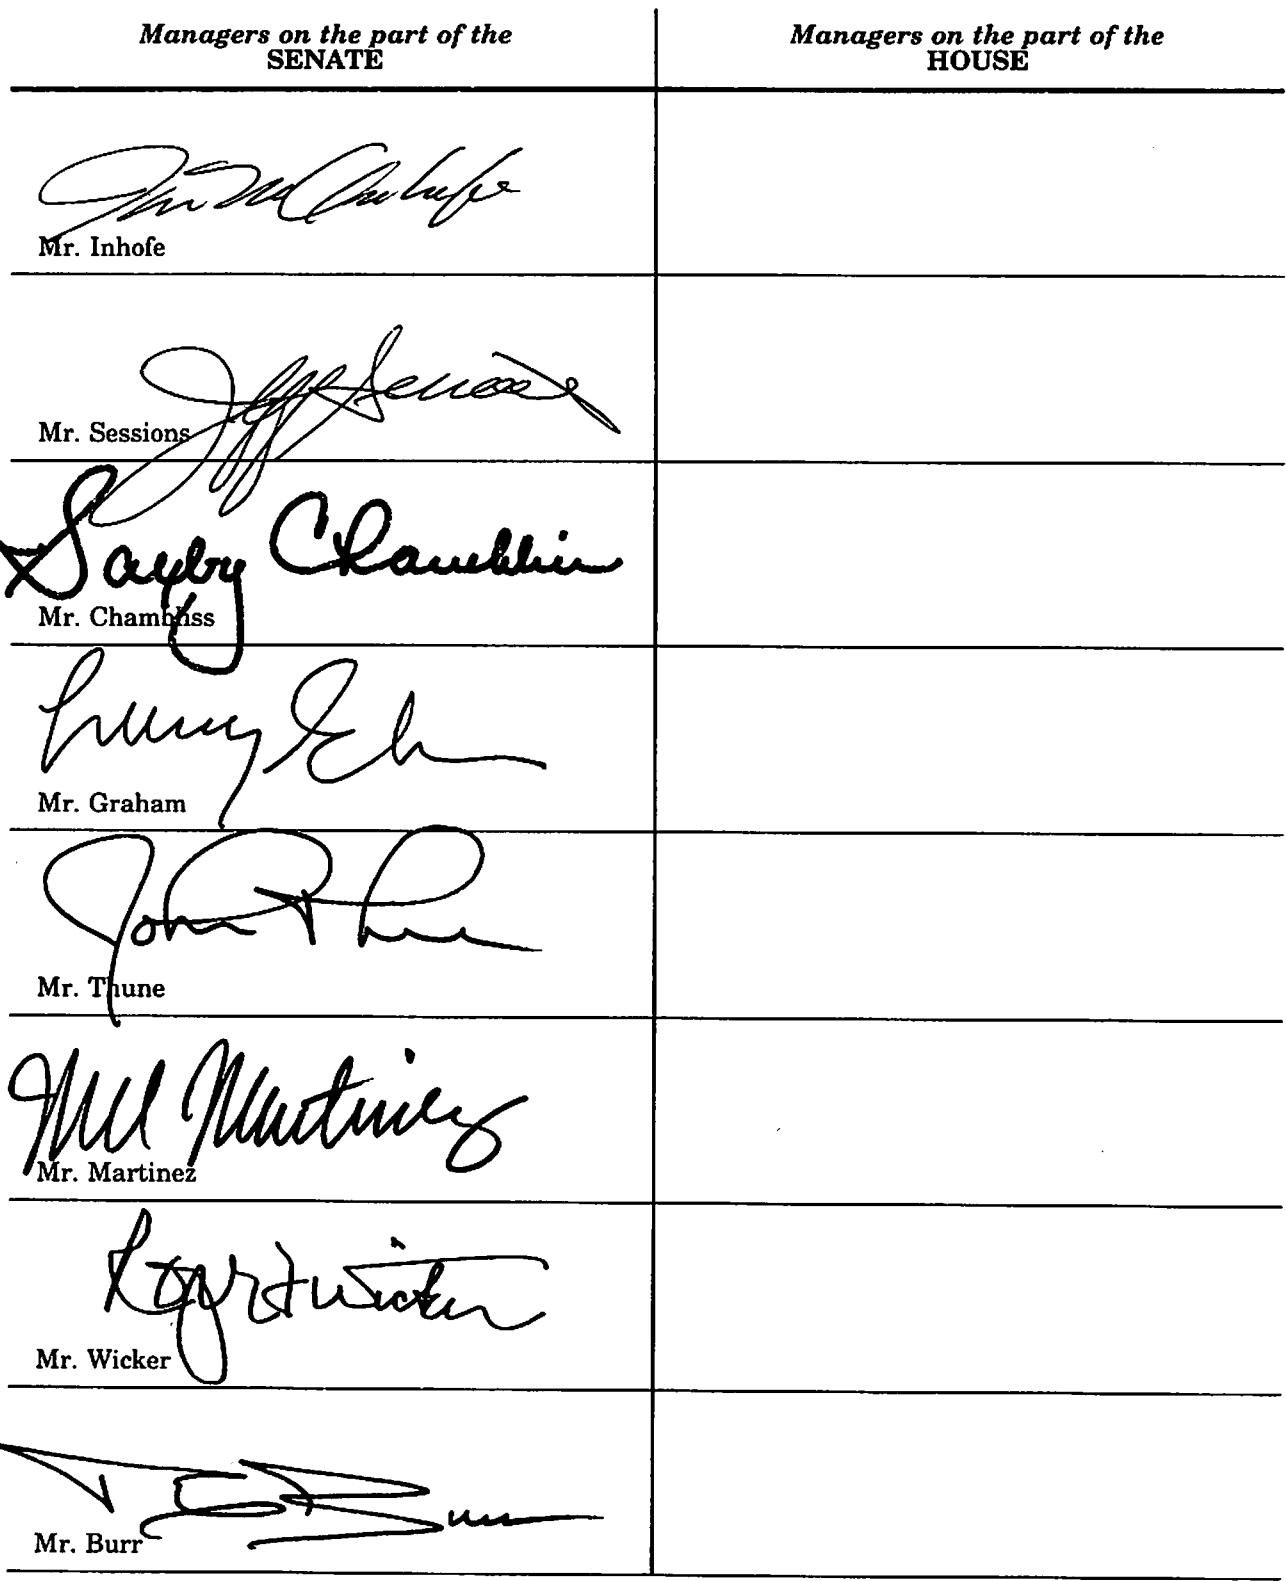 Managers on the part of the
SENATE
Managers on the part of the
HOUSE
Mr. Inhofe
Jeff Sessions
Mr. Sessions
Saxby Chambliss
Mr. Chambliss
Mr. Graham
John Thune
Mr. Thune
Mel Martinez
Mr. Martinez
Roger F Wicker
Mr. Wicker
Burr
Mr. Burr